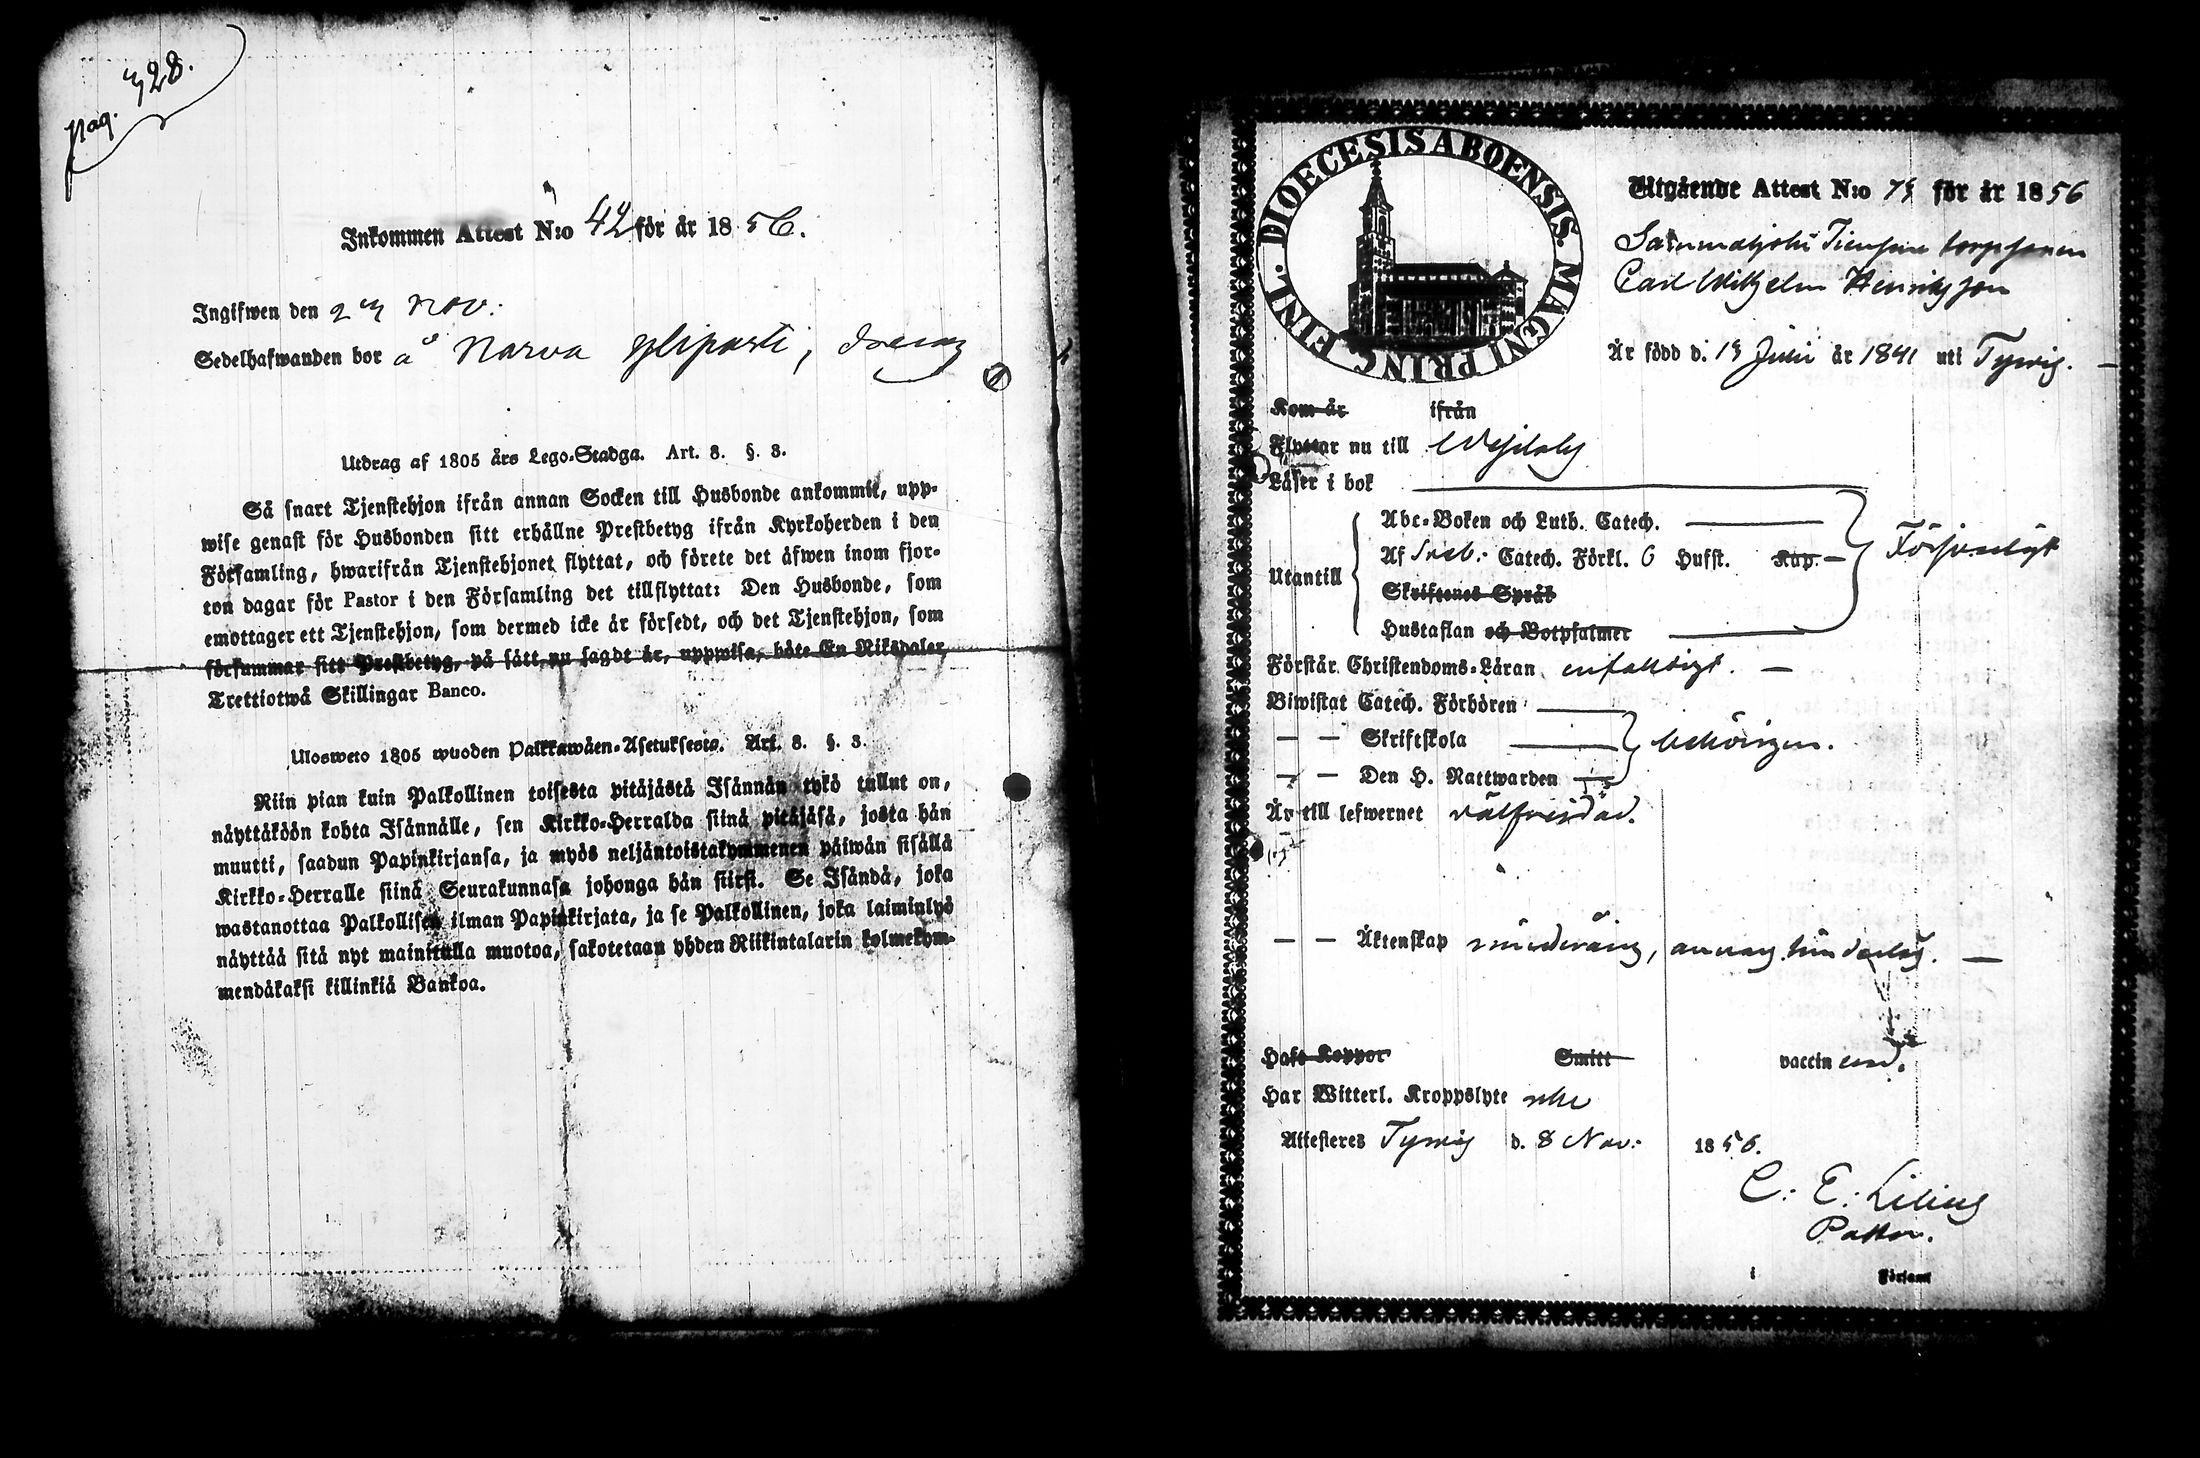 pag. 328.
Inkommen Attest N:o 42 för år 1856.
Ingifwen den 23 Nov:
Sedelhafwanden bor å Narva yliparti, dreng
Utdrag af 1805 års Lego-Stadga. Art. 3. §. 3.
Så snart Tjenstehjon ifrån annan Socken till Husbonde ankommit, upp-
wise genast för Husbonden sitt erhållne Prestbetyg ifrån Kyrkoherden i den
Församling, hwarifrån Tjenstehjonet flyttat, och förete det äfwen inom fjor-
ton dagar för Pastor i den Församling det tillflyttat: Den Husbonde, som
emottager ett Tjenstehjon, som dermed icke är försedt, och det Tjenstehjon, som
försummar sitt Prestbetyg, på sätt nu sagdt är, uppwisa, böte En Riksdaler
Trettiotwå Skillingar Banco.
Ulosweto 1805 wuoden Palkkawäen-Asetuksesta. Art. 3. §. 3.
Niin pian kuin Palkollinen toisesta pitäjästä Isännän tykö tullut on,
näyttäköön kohta Isännälle, sen Kirkko-Herralda siinä pitäjäsä, josta hän
muutti, saadun Papinkirjansa, ja myös neljäntoistakymmenen päiwän sisällä
Kirkko-Herralle siinä Seurakunnasa johonga hän siirsi. Se Isändä, joka
wastanottaa Palkollisen ilman Papinkirjata, ja se Palkollinen, joka laiminlyö
näyttää sitä nyt mainitulla muotoa, sakotetaan yhden Riikintalarin kolmekym-
mendäkaksi killinkiä Bankoa.
FINL. DIOECESIS ABOENSIS. MAGNI PRINC.
Utgående Attest N:o 73 för år 1856
torpsonen
Carl Wilhelm Henriksson
Är född d. 13 Julii år 1841 uti Tyrvis.
Kom år ifrån
Flyttar nu till Wesilaks
Läser i bok
Abc-Boken och Luth. Catech.
Utantill Af Sveb: Catech. Förkl. 6 Hufst. Kap. Försvarligt
Skriftenes Språk
Hustaflan och Botpsalmer
Förstår Christendoms-Läran enfaldigt.
Biwistat Catech. Förhören
— — Skriftskola behörigen.
— — Den H. Nattwarden
Är till lefwernet välfrejdad.
— — Äktenskap minderårig, annars hinderlös.
Haft Koppor Smitt vaccinerad.
Har Witterl. Kroppslyte icke
Attesteres Tyrvis d. 8 Nov: 1856.
C: E: Lilius
Pastor.
i Förssml